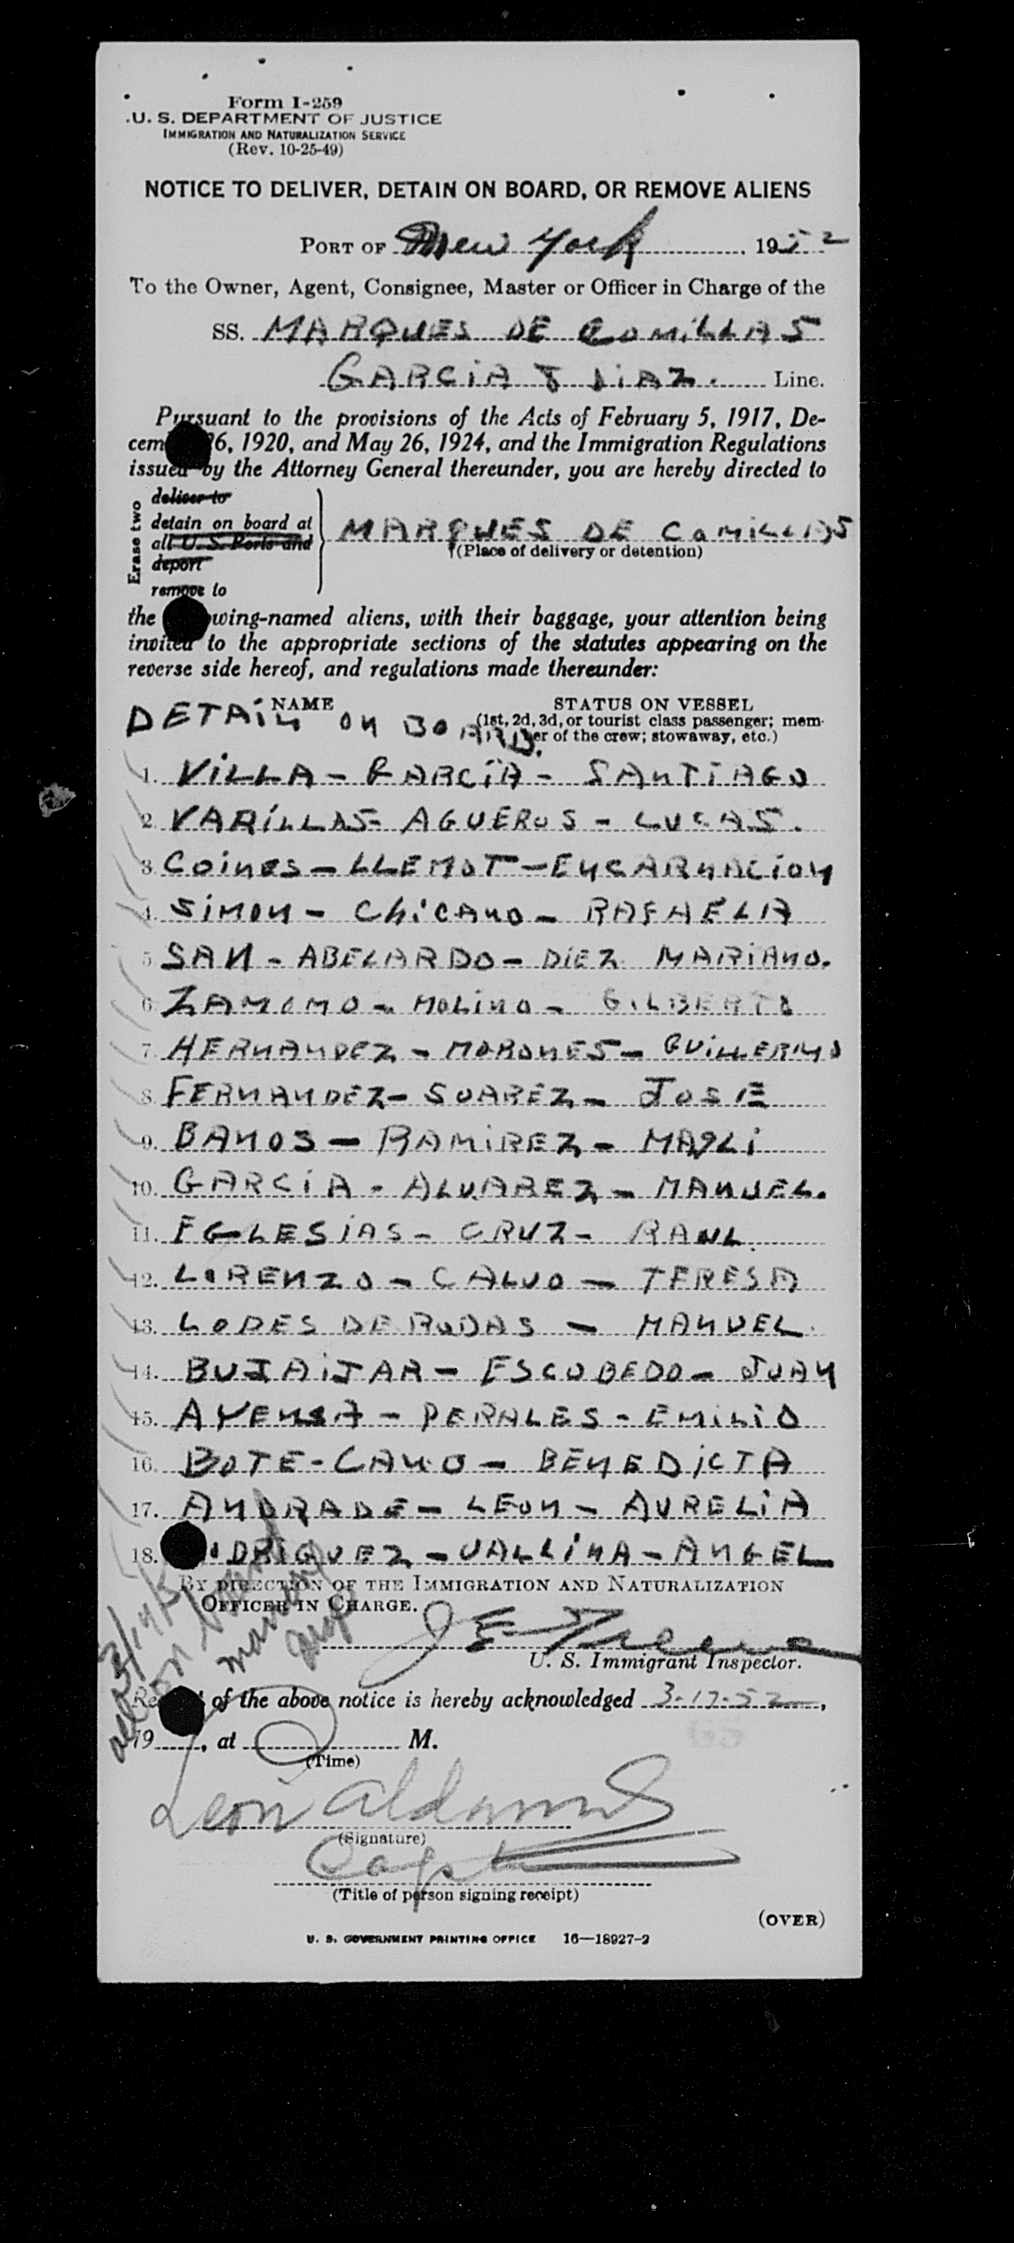 Form I-259
U. S. DEPARTMENT OF JUSTICE
IMMIGRATION AND NATURALIZATION SERVICE
(Rev. 10-25-49)
NOTICE TO DELIVER, DETAIN ON BOARD, OR REMOVE ALIENS
PORT OF New York, 1952
To the Owner, Agent, Consignee, Master or Officer in Charge of the
SS. MARQUES DE COMILLAS
GARCIA & DIAZ. Line.
Pursuant to the provisions of the Acts of February 5, 1917, De-
cem 26, 1920, and May 26, 1924, and the Immigration Regulations
issued by the Attorney General thereunder, you are hereby directed to
Erase two
deliver to
detain on board at MARQUES DE COMILLAS
all U. S. Ports and (Place of delivery or detention)
deport
remove to
the wing-named aliens, with their baggage, your attention being
invited to the appropriate sections of the statutes appearing on the
reverse side hereof, and regulations made thereunder:
NAME STATUS ON VESSEL
DETAIN ON BOARD. (1st, 2d, 3d, or tourist class passenger; mem-
er of the crew; stowaway, etc.)
1. VILLA - GARCIA - SANTIAGO
2. VARILLAS - AGUEROS - LUCAS.
3. COINES - LLEMOT - ENCARNACION
4. SIMON - CHICANO - RAFAELIA
5 SAN - ABELARDO - DIEZ MARIANO.
6. ZAMOMO - MOLINO - GILBERTO
7. HERNANDEZ - MORONES - GUILLERMO
8. FERNANDEZ - SUAREZ - JOSE
9. BANOS - RAMIREZ -
10. GARCIA - ALVAREZ - MANUEL.
11. EGLESIAS - CRUZ - RAUL.
12. LORENZO - CALVO - TERESA
13. LOPES DE RODAS - MANUEL.
14. BUJAIJAR - ESCOBEDO - JUAN
15. AYENSA - PERALES - EMILIO
16. BOTE - CANO - BENEDICTA
17. ANDRADE - LEON - AURELIA
18. ODRIGUEZ - VALLINA - ANGEL
BY DIRECTION OF THE IMMIGRATION AND NATURALIZATION
OFFICER IN CHARGE.
U. S. Immigrant Inspector.
Re of the above notice is hereby acknowledged 3-17-52,
19, at M.
(Time)
Leon
(Signature)
Capt
(Title of person signing receipt)
(OVER)
U. S. GOVERNMENT PRINTING OFFICE 16—18927-2